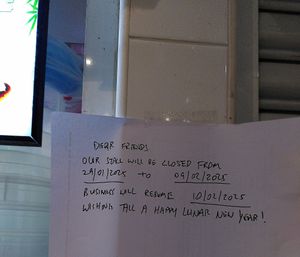 DEAR FRIENDS
OUR STALL WILL BE CLOSED FROM
29/01/2025 TO 09/02/2025
BUSINESS WILL RESUME 10/02/2025
WISHING ALL A HAPPY LUNAR NEW YEAR!